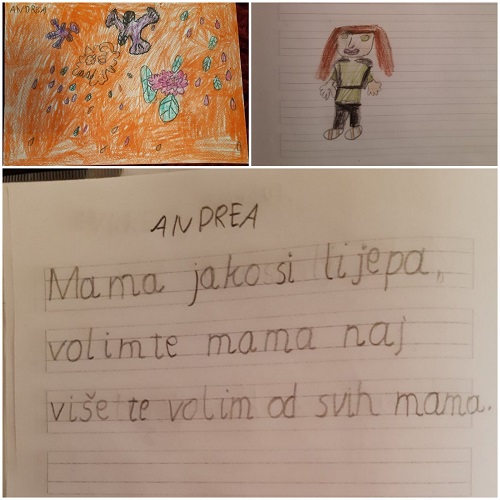 ANDREA
ANDREA
Mama jako si lijepa,
volimte mama naj
više te volim od svih mama.